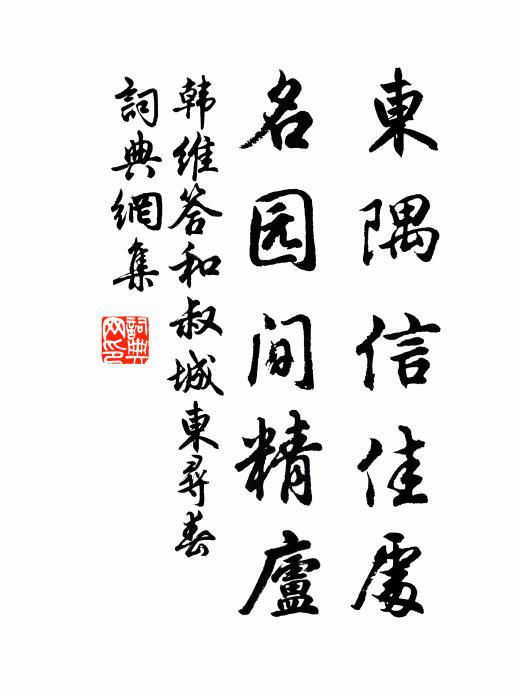 東隅信佳處
名园间精廬
韩维答和叔城東尋春
詞典網集
詞典网印